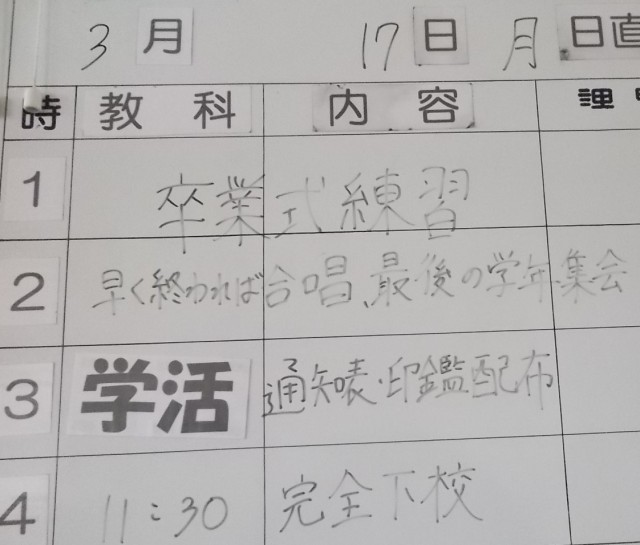 3月 17日 月 日直
時 教科 内容
1 卒業式練習
2 早く終われば合唱、最後の学年集会
3 学活 通知表・印鑑配布
4 11:30 完全下校